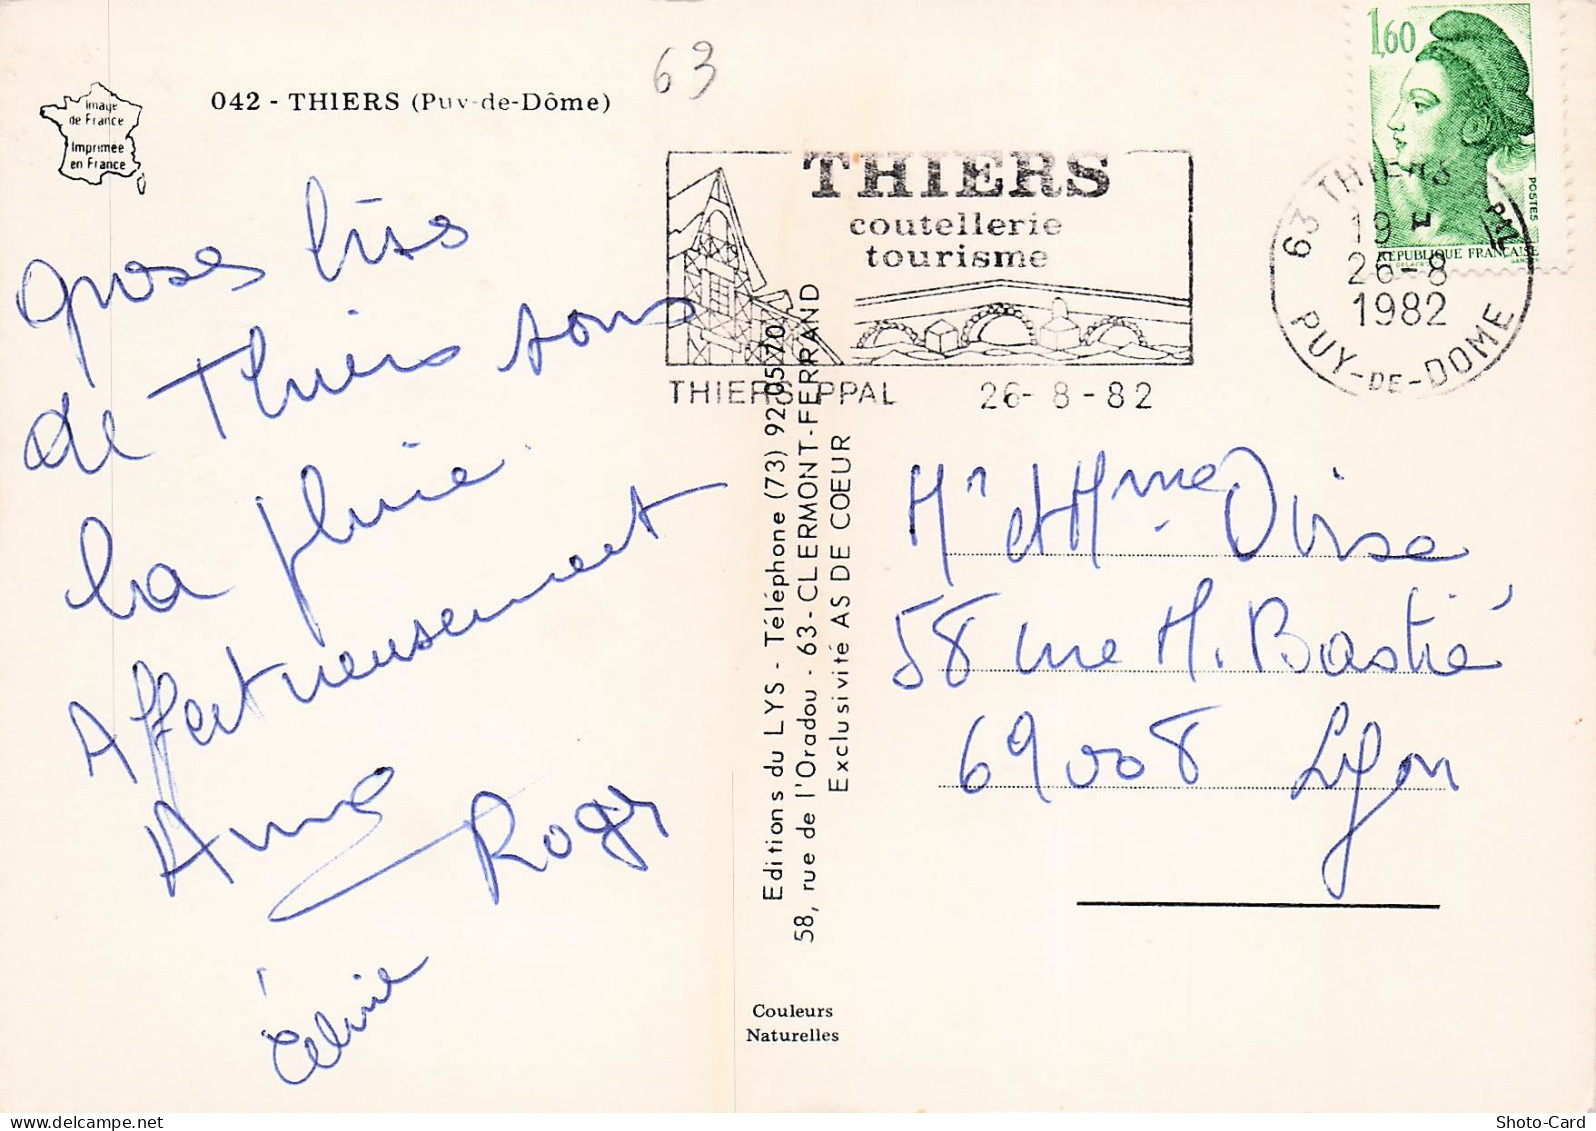 Image
de France
Imprimée
en France
042 - THIERS (Puy-de-Dôme)
63
THIERS
coutellerie
tourisme
THIERS PPAL 26-8-82
1,60
POSTES
REPUBLIQUE FRANÇAISE
63 THIERS PPAL
19 H
26-8
1982
PUY-DE-DOME
groses bises
de Thiers sous
la pluie.
Affectueusement
Anne
Roger
Céline
Editions du LYS - Téléphone (73) 92.05.70
58, rue de l'Oradou - 63 - CLERMONT-FERRAND
Exclusivité AS DE COEUR
Couleurs
Naturelles
Mr et Mme
58 rue M. Bastié
69008 Lyon
Shoto-Card